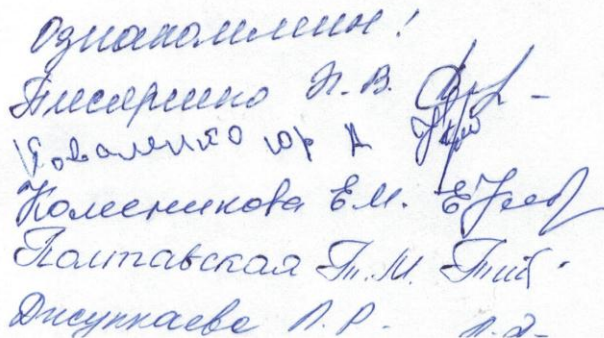 Ознакомлены!
Писаренко Н.В.
Коваленко Юр А
Колесникова Е.М.
Полтавская Т.М.
Джуккаева Л.Р.